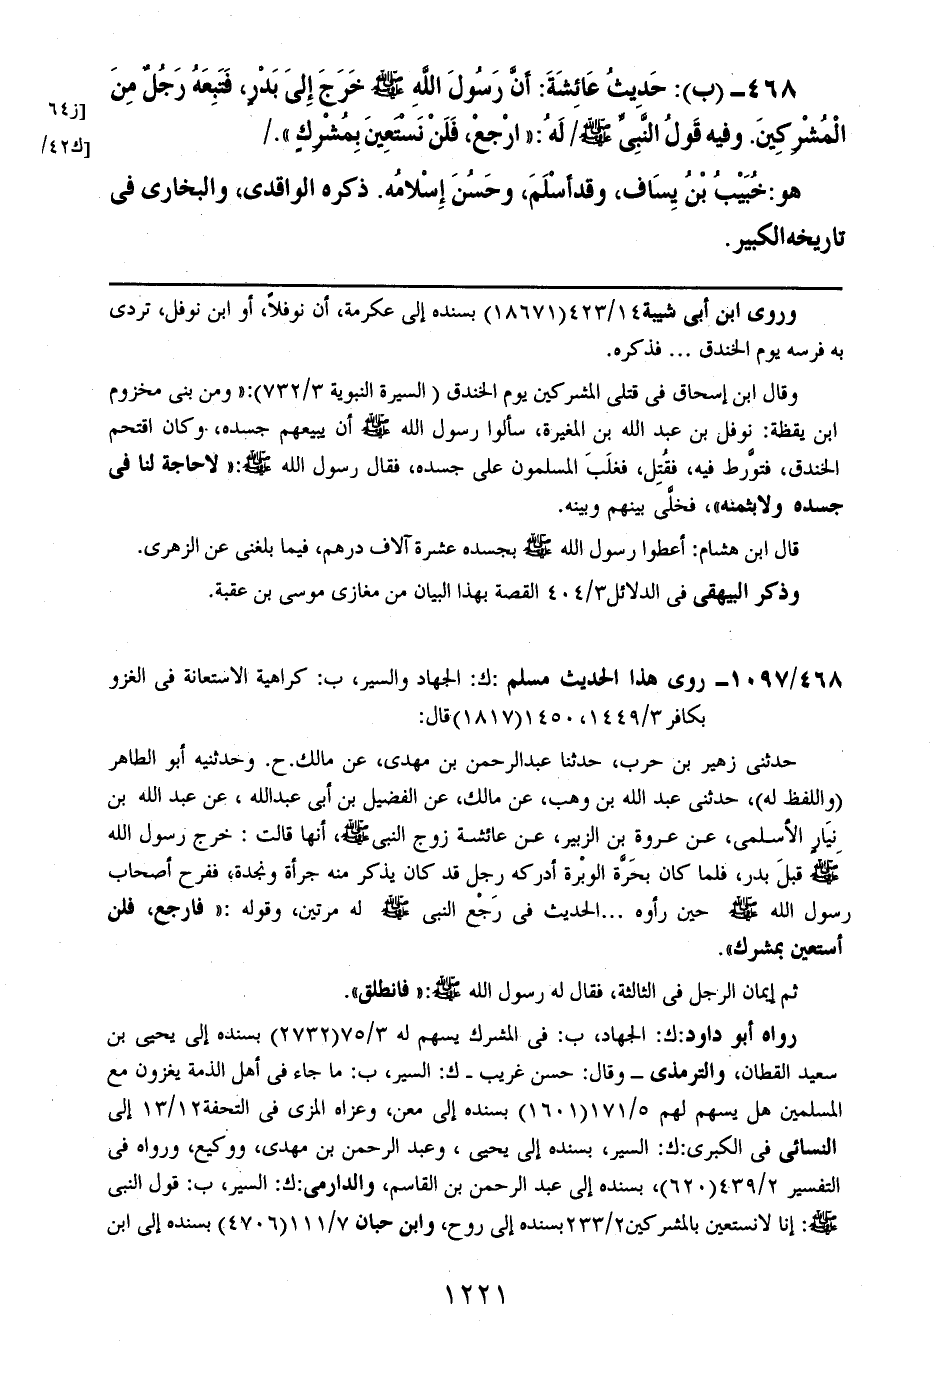 ٤٦٨ـ (ب): حَدِيثُ عَائِشَةَ: أنَّ رَسُولَ اللَّهِ ﷺ خَرَجَ إِلىَ بَدْرٍ، فَتَبِعَهُ رَجُلٌ مِنَ
[ز٦٤
الْمُشْرِكِينَ. وفيه قَولُ النَّبِىِّ ﷺ/ لَهُ:« ارْجعْ، فَلَنْ نَسْتَعِينَ بِمُشْرِكٍ»./
[ك٤٢/
هو: خُبَيْبُ بْنُ يِسَاف، وقد أسْلَمَ، وحَسُنَ إِسْلامُه. ذكره الواقدى، والبخارى فى
تاريخه الكبير.
وروى ابن أبى شيبة٤٢٣/١٤(١٨٦٧١) بسنده إلى عكرمة، أن نوفلاً، أو ابن نوفل، تردى
به فرسه يوم الخندق ... فذكره.
وقال ابن إسحاق فى قتلى المشركين يوم الخندق ( السيرة النبوية ٧٣٢/٣):« ومن بنى مخزوم
ابن يقظة: نوفل بن عبد الله بن المغيرة، سألوا رسول الله ﷺ أن يبيعهم جسده، وكان اقتحم
الخندق، فتورَّط فيه، فقُتِل، فغلَبَ المسلمون على جسده، فقال رسول الله ﷺ:« لاحاجة لنا فى
جسده ولابثمنه»، فخلَّى بينهم وبينه.
قال ابن هشام: أعطوا رسول الله ﷺ بجسده عشرة آلاف درهم، فيما بلغنى عن الزهرى.
وذكر البيهقى فى الدلائل٤٠٤/٣ القصة بهذا البيان من مغازى موسى بن عقبة.
١٠٩٧/٤٦٨ـ روى هذا الحديث مسلم :ك: الجهاد والسير، ب: كراهية الاستعانة فى الغزو
بكافر ١٤٤٩/٣، ١٤٥٠(١٨١٧)قال:
حدثنى زهير بن حرب، حدثنا عبدالرحمن بن مهدى، عن مالك.ح. وحدثنيه أبو الطاهر
(واللفظ له)، حدثنى عبد الله بن وهب، عن مالك، عن الفضيل بن أبى عبدالله ، عن عبد الله بن
نِيَارٍ الأسلمى، عن عروة بن الزبير، عن عائشة زوج النبىﷺ، أنها قالت : خرج رسول الله
ﷺ قبلَ بدر، فلما كان بحَرَّة الوبْرة أدركه رجل قد كان يذكر منه جرأة ونجدة، ففرح أصحاب
رسول الله ﷺ حين رأوه ...الحديث فى رَجْع النبى ﷺ له مرتين، وقوله :« فارجع، فلن
أستعين بمشرك».
ثم إيمان الرجل فى الثالثة، فقال له رسول الله ﷺ:« فانطلق».
رواه أبو داود:ك: الجهاد، ب: فى المشرك يسهم له ٧٥/٣(٢٧٣٢) بسنده إلى يحيى بن
سعيد القطان، والترمذى ـ وقال: حسن غريب ـ ك: السير، ب: ما جاء فى أهل الذمة يغزون مع
المسلمين هل يسهم لهم ١٧١/٥(١٦٠١) بسنده إلى معن، وعزاه المزى فى التحفة١٣/١٢ إلى
النسائى فى الكبرى:ك: السير، بسنده إلى يحيى ، وعبد الرحمن بن مهدى، ووكيع، ورواه فى
التفسير ٤٣٩/٢(٦٢٠)، بسنده إلى عبد الرحمن بن القاسم، والدارمى:ك: السير، ب: قول النبى
ﷺ: إنا لانستعين بالمشركين٢٣٣/٢بسنده إلى روح، وابن حبان ١١١/٧(٤٧٠٦) بسنده إلى ابن
١٢٢١